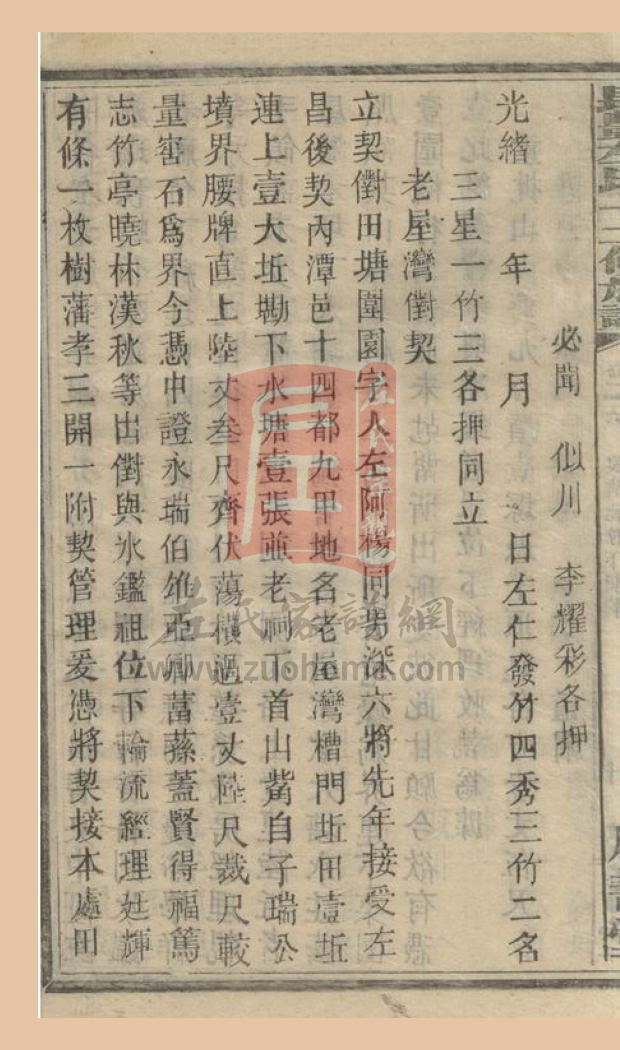 必聞　似川　李耀彩各押
光緒　年　月　日左仁發竹四秀三竹二名
三星一竹三各押同立
老屋灣對契
立契對田塘圍園字人左阿楊同男深六將先年接受左
昌後契內潭邑十四都九甲地名老屋灣槽門坵田壹坵
連上壹大坵勘下水塘壹張並老祠下首山嵛自子瑞公
墳界腰牌直上陸丈叁尺齊伏蕩橫過壹丈陸尺裁尺較
量窑石爲界今憑中證永瑞伯雄亞卿菖蓀蓋賢得福篤
志竹亭曉林漢秋等出對與氷鑑祖位下輪流經理廷輝
有條一枚樹藩孝三開一附契管理爰憑將契接本處田
左氏家譜網
www.zuohome.com